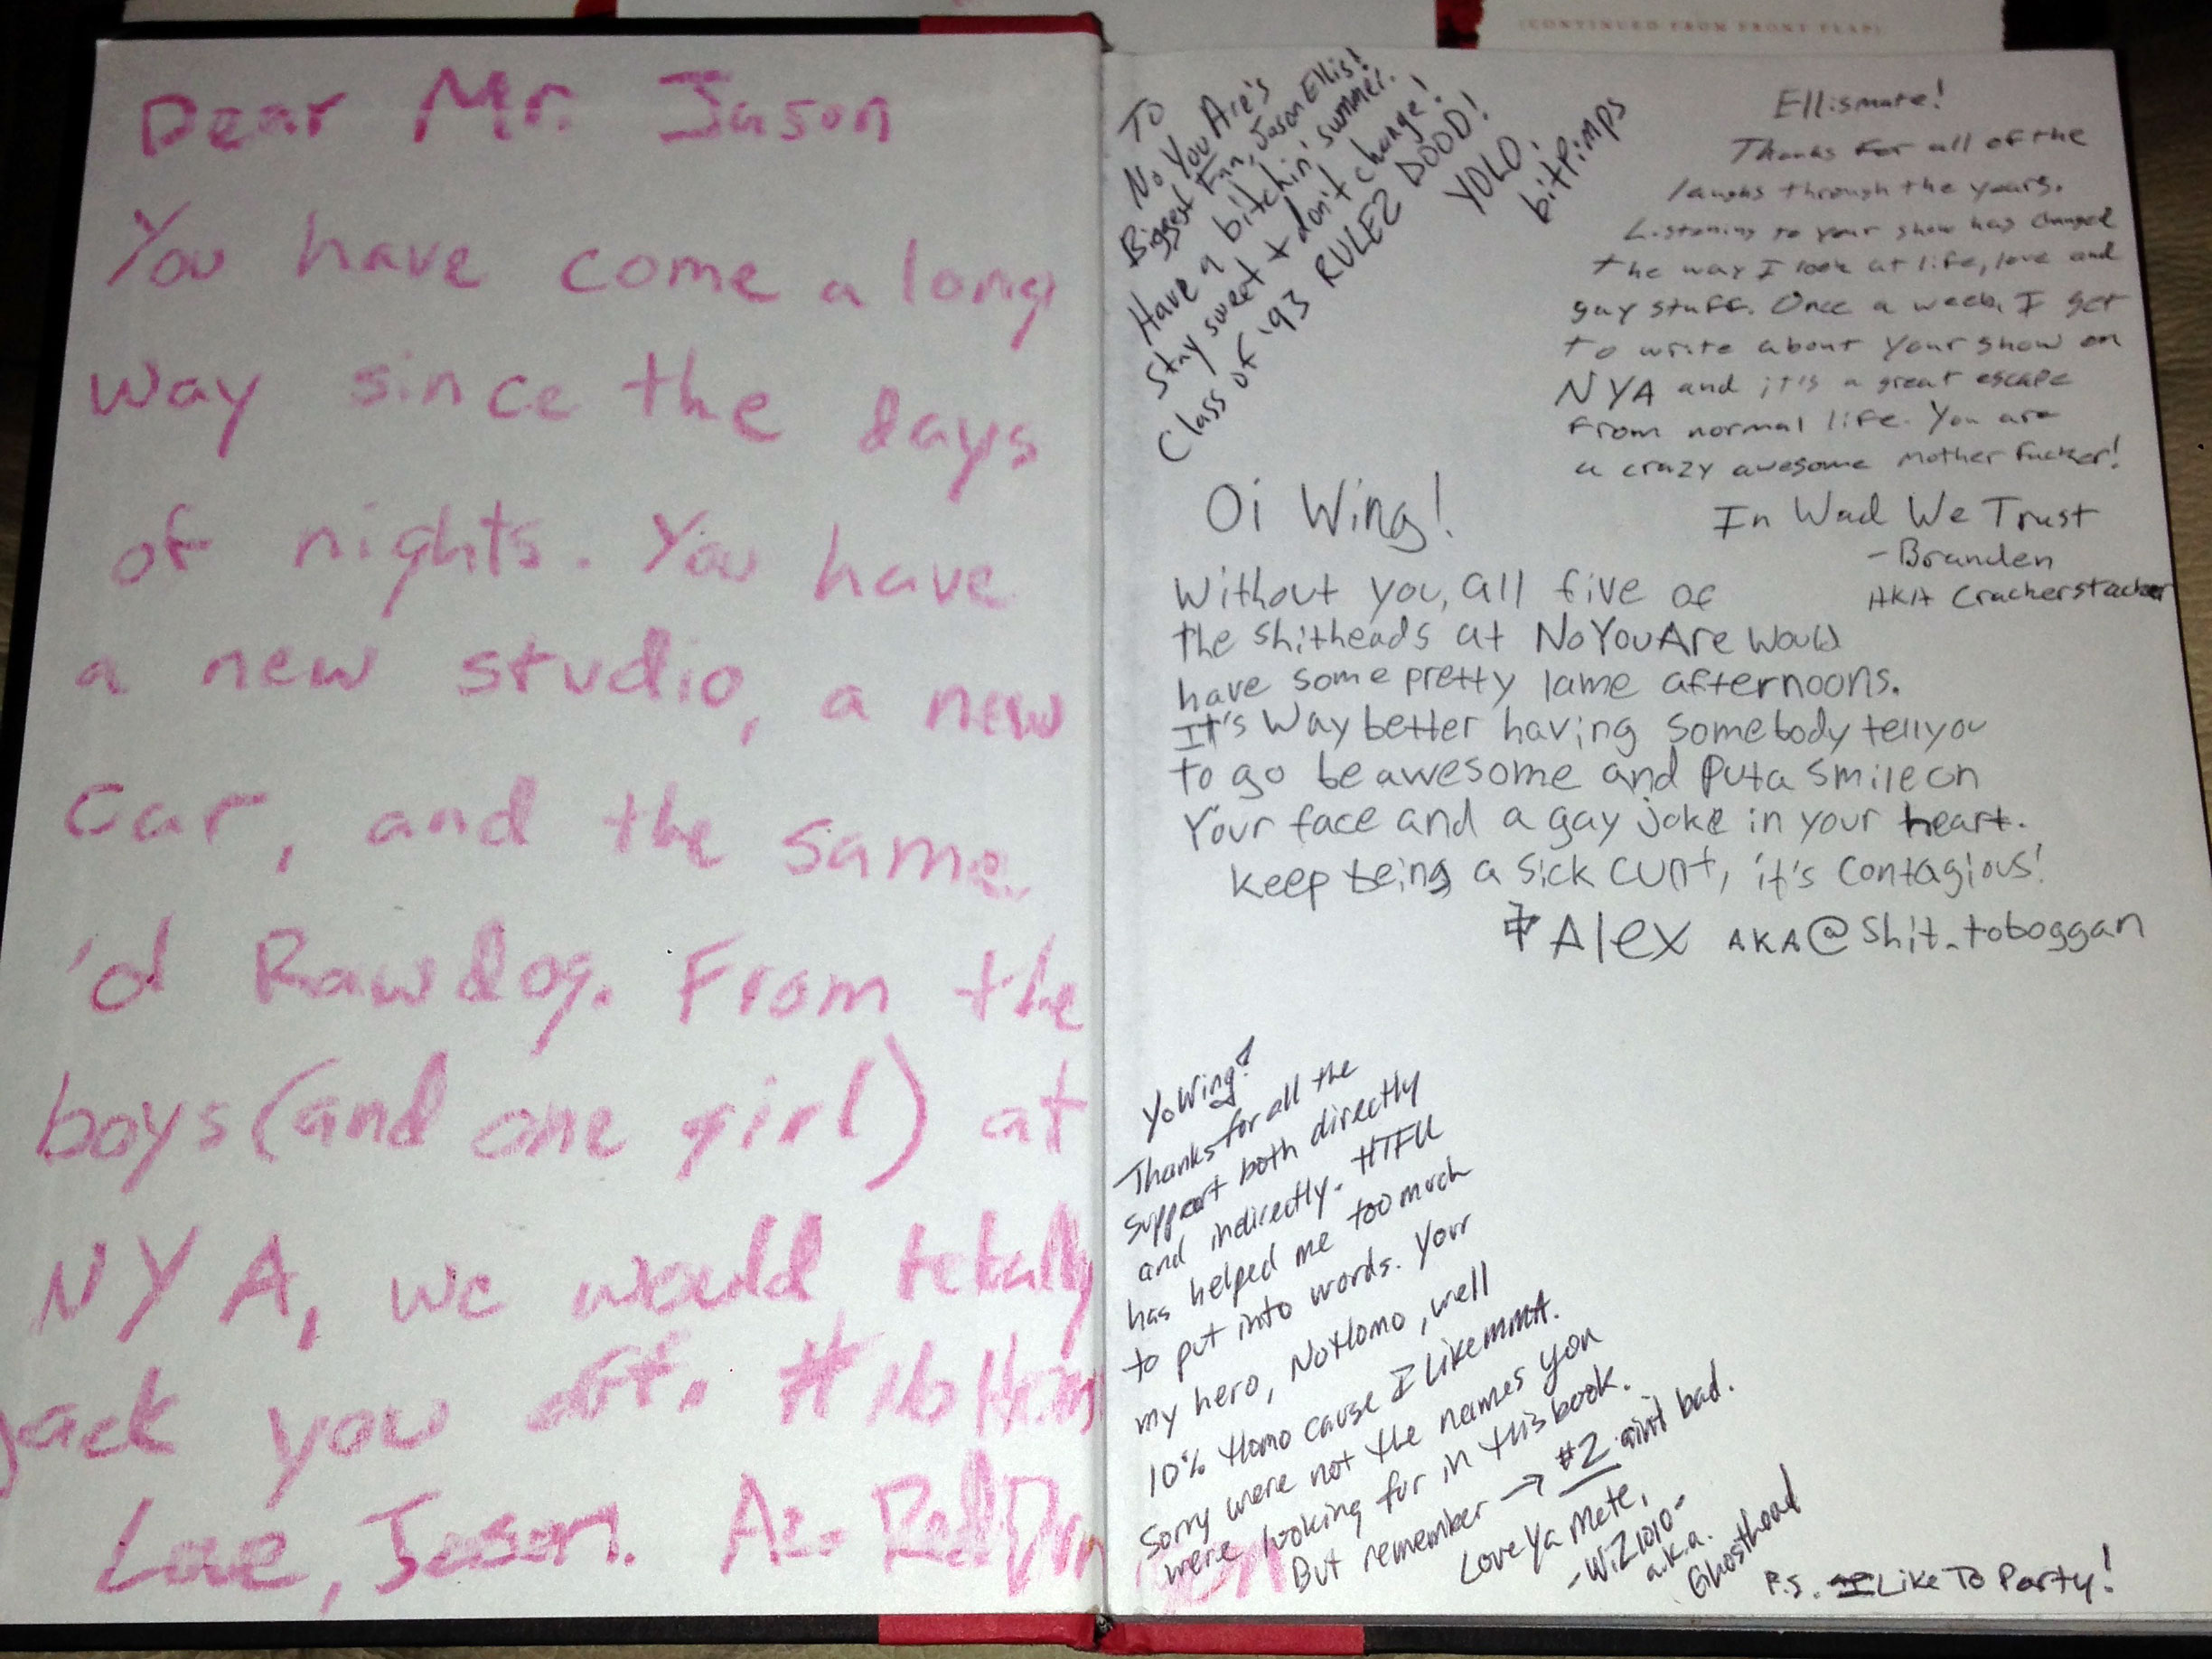 (CONTINUED FROM FRONT FLAP)
Dear Mr. Jason
You have come a long
way since the days
of nights. You have
a new studio, a new
car, and the same
'ol Rawdog. From the
boys (and one girl) at
NYA, we would totally
jack you off. #NoHomo
Love, Jason.
To
No You Are's
Biggest Fan, Jason Ellis!
Have a bitchin' summer.
Stay sweet + don't change!
Class of '93 RULEZ DOOD!
YOLO!
bitPimps
Ellismate!
Thanks for all of the
laughs through the years.
Listening to your show has changed
the way I look at life, love and
gay stuff. Once a week, I get
to write about your show on
NYA and it's a great escape
from normal life. You are
a crazy awesome mother fucker!
In Wad We Trust
- Branden
AKA Crackerstacker
Oi Wing!
Without you, all five of
the shitheads at NoYouAre would
have some pretty lame afternoons.
It's way better having somebody tell you
to go be awesome and put a smile on
your face and a gay joke in your heart.
keep being a sick cunt, it's contagious!
Alex AKA @shit_toboggan
Yo Wing!
Thanks for all the
support both directly
and indirectly. HTFU
has helped me too much
to put into words. Your
my hero, NoHomo, well
10% Homo cause I like MMA.
Sorry were not the names you
were looking for in this book.
But remember → #2 ain't bad.
Love Ya Mate,
-WiZ1010-
a.k.a.
Ghosthead
P.S. I Like To Party!